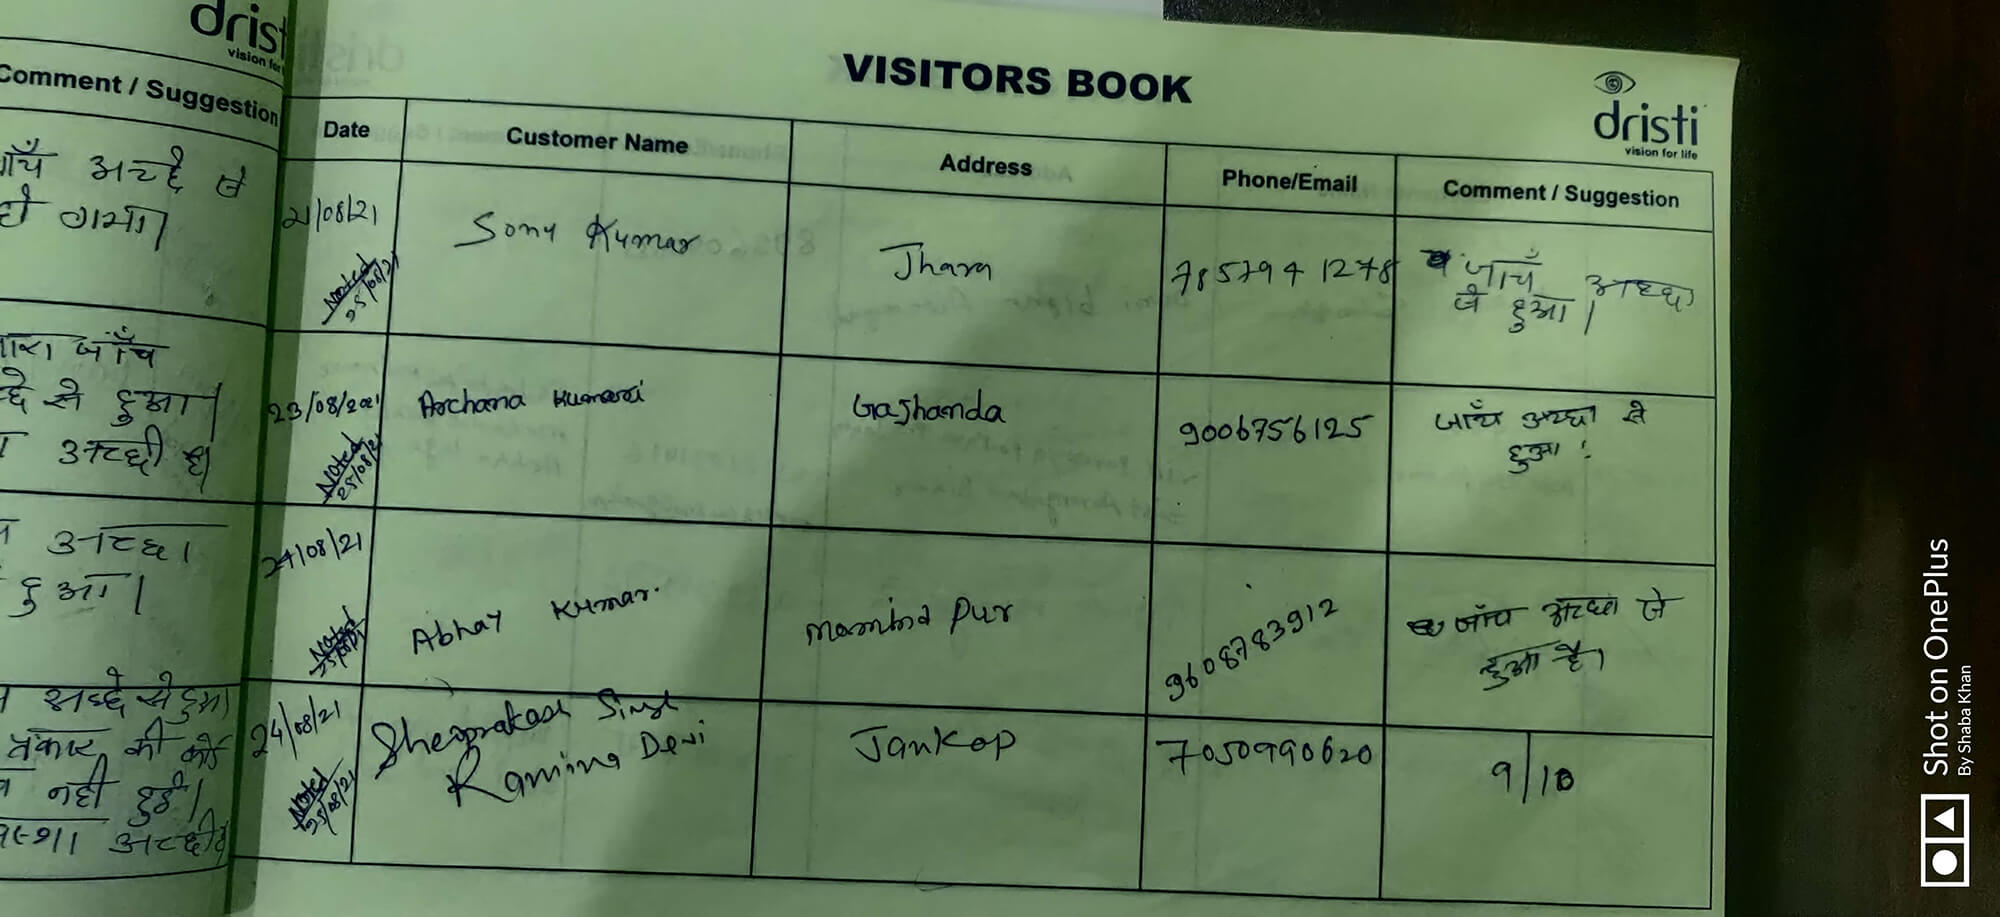 dristi
vision for
Comment / Suggestion
जाँच अच्छे से
हो गया।
जाँच
से हुआ।
अच्छी है।
अच्छा
हुआ।
अच्छे से हुआ
प्रकार की कोई
नहीं हुई।
अच्छी है
VISITORS BOOK
dristi
vision for life
Date
Customer Name
Address
Phone/Email
Comment / Suggestion
21/08/21
Sonu Kumar
Jhara
7857941278
जाँच अच्छा
से हुआ।
Noted
25/08/21
23/08/2021
Archana Kumari
Gajhanda
9006756125
जाँच अच्छा से
हुआ।
Noted
25/08/21
24/08/21
Abhay Kumar.
Pur
9608783912
जाँच अच्छा से
हुआ है।
Noted
25/08/21
24/08/21
Sheoprakash Singh
Devi
Jankop
7050990620
9/10
Noted
25/08/21
Shot on OnePlus
By Shaba Khan